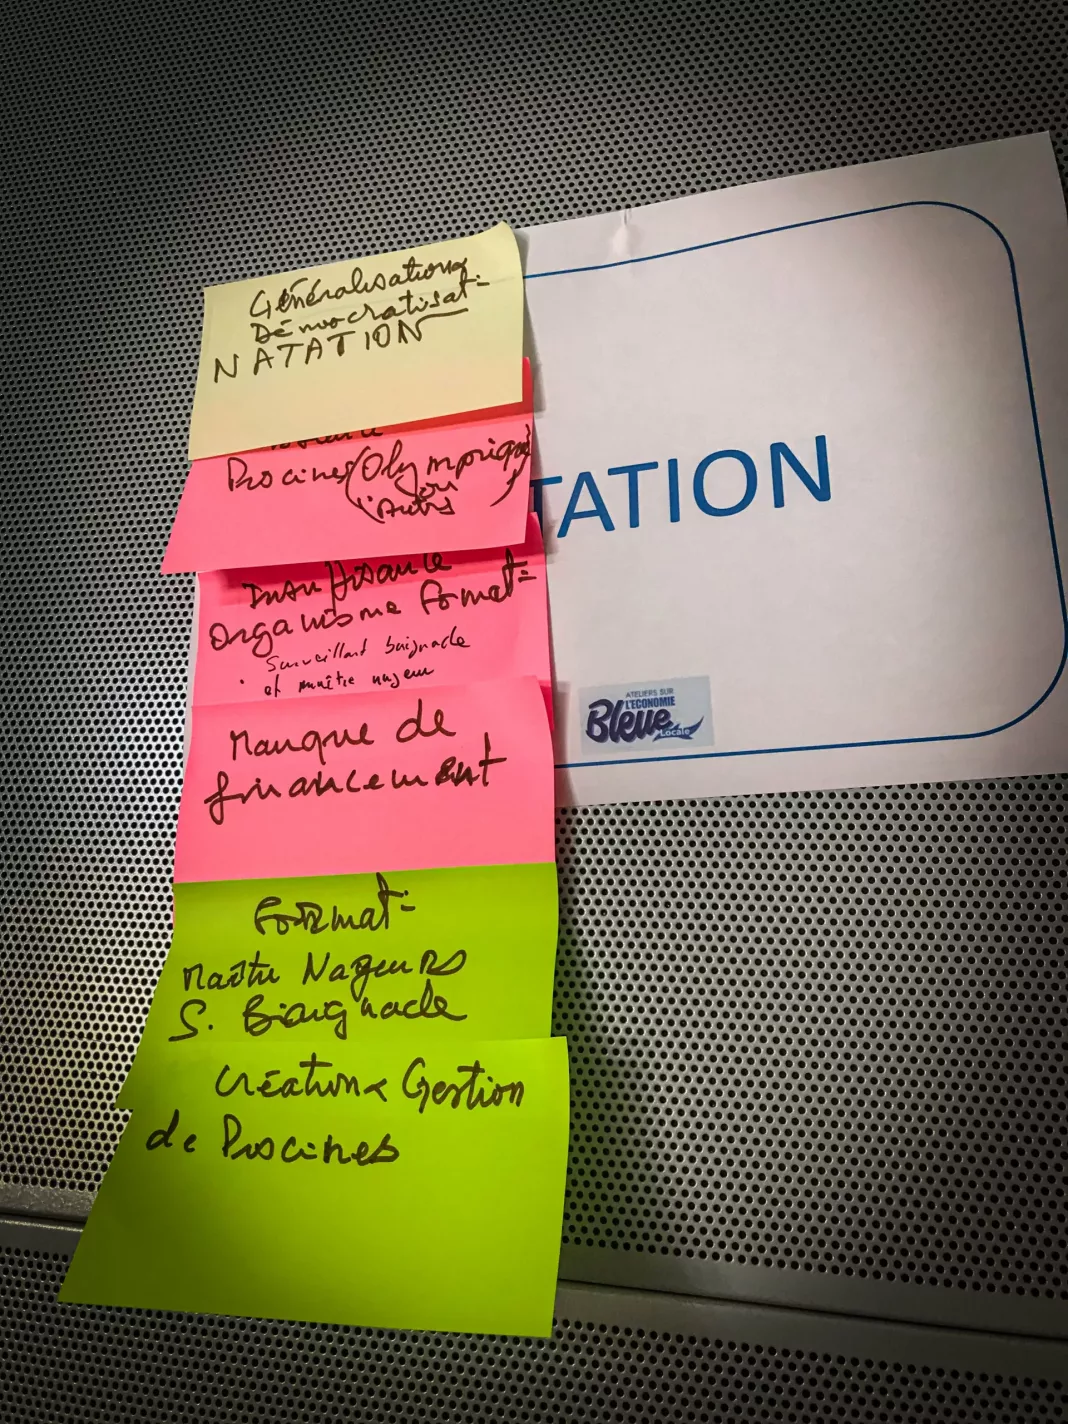 Généralisation &
Démocratisat-
NATATION
Piscines (Olympique
ou
Autres)
Insuffisance
Organisme format-
Surveillant baignade
et maître nageur
Manque de
financement
Format-
Maître Nageurs
S. Baignade
Création & Gestion
de Piscines
TATION
ATELIERS SUR
L'ÉCONOMIE
Bleue
Locale